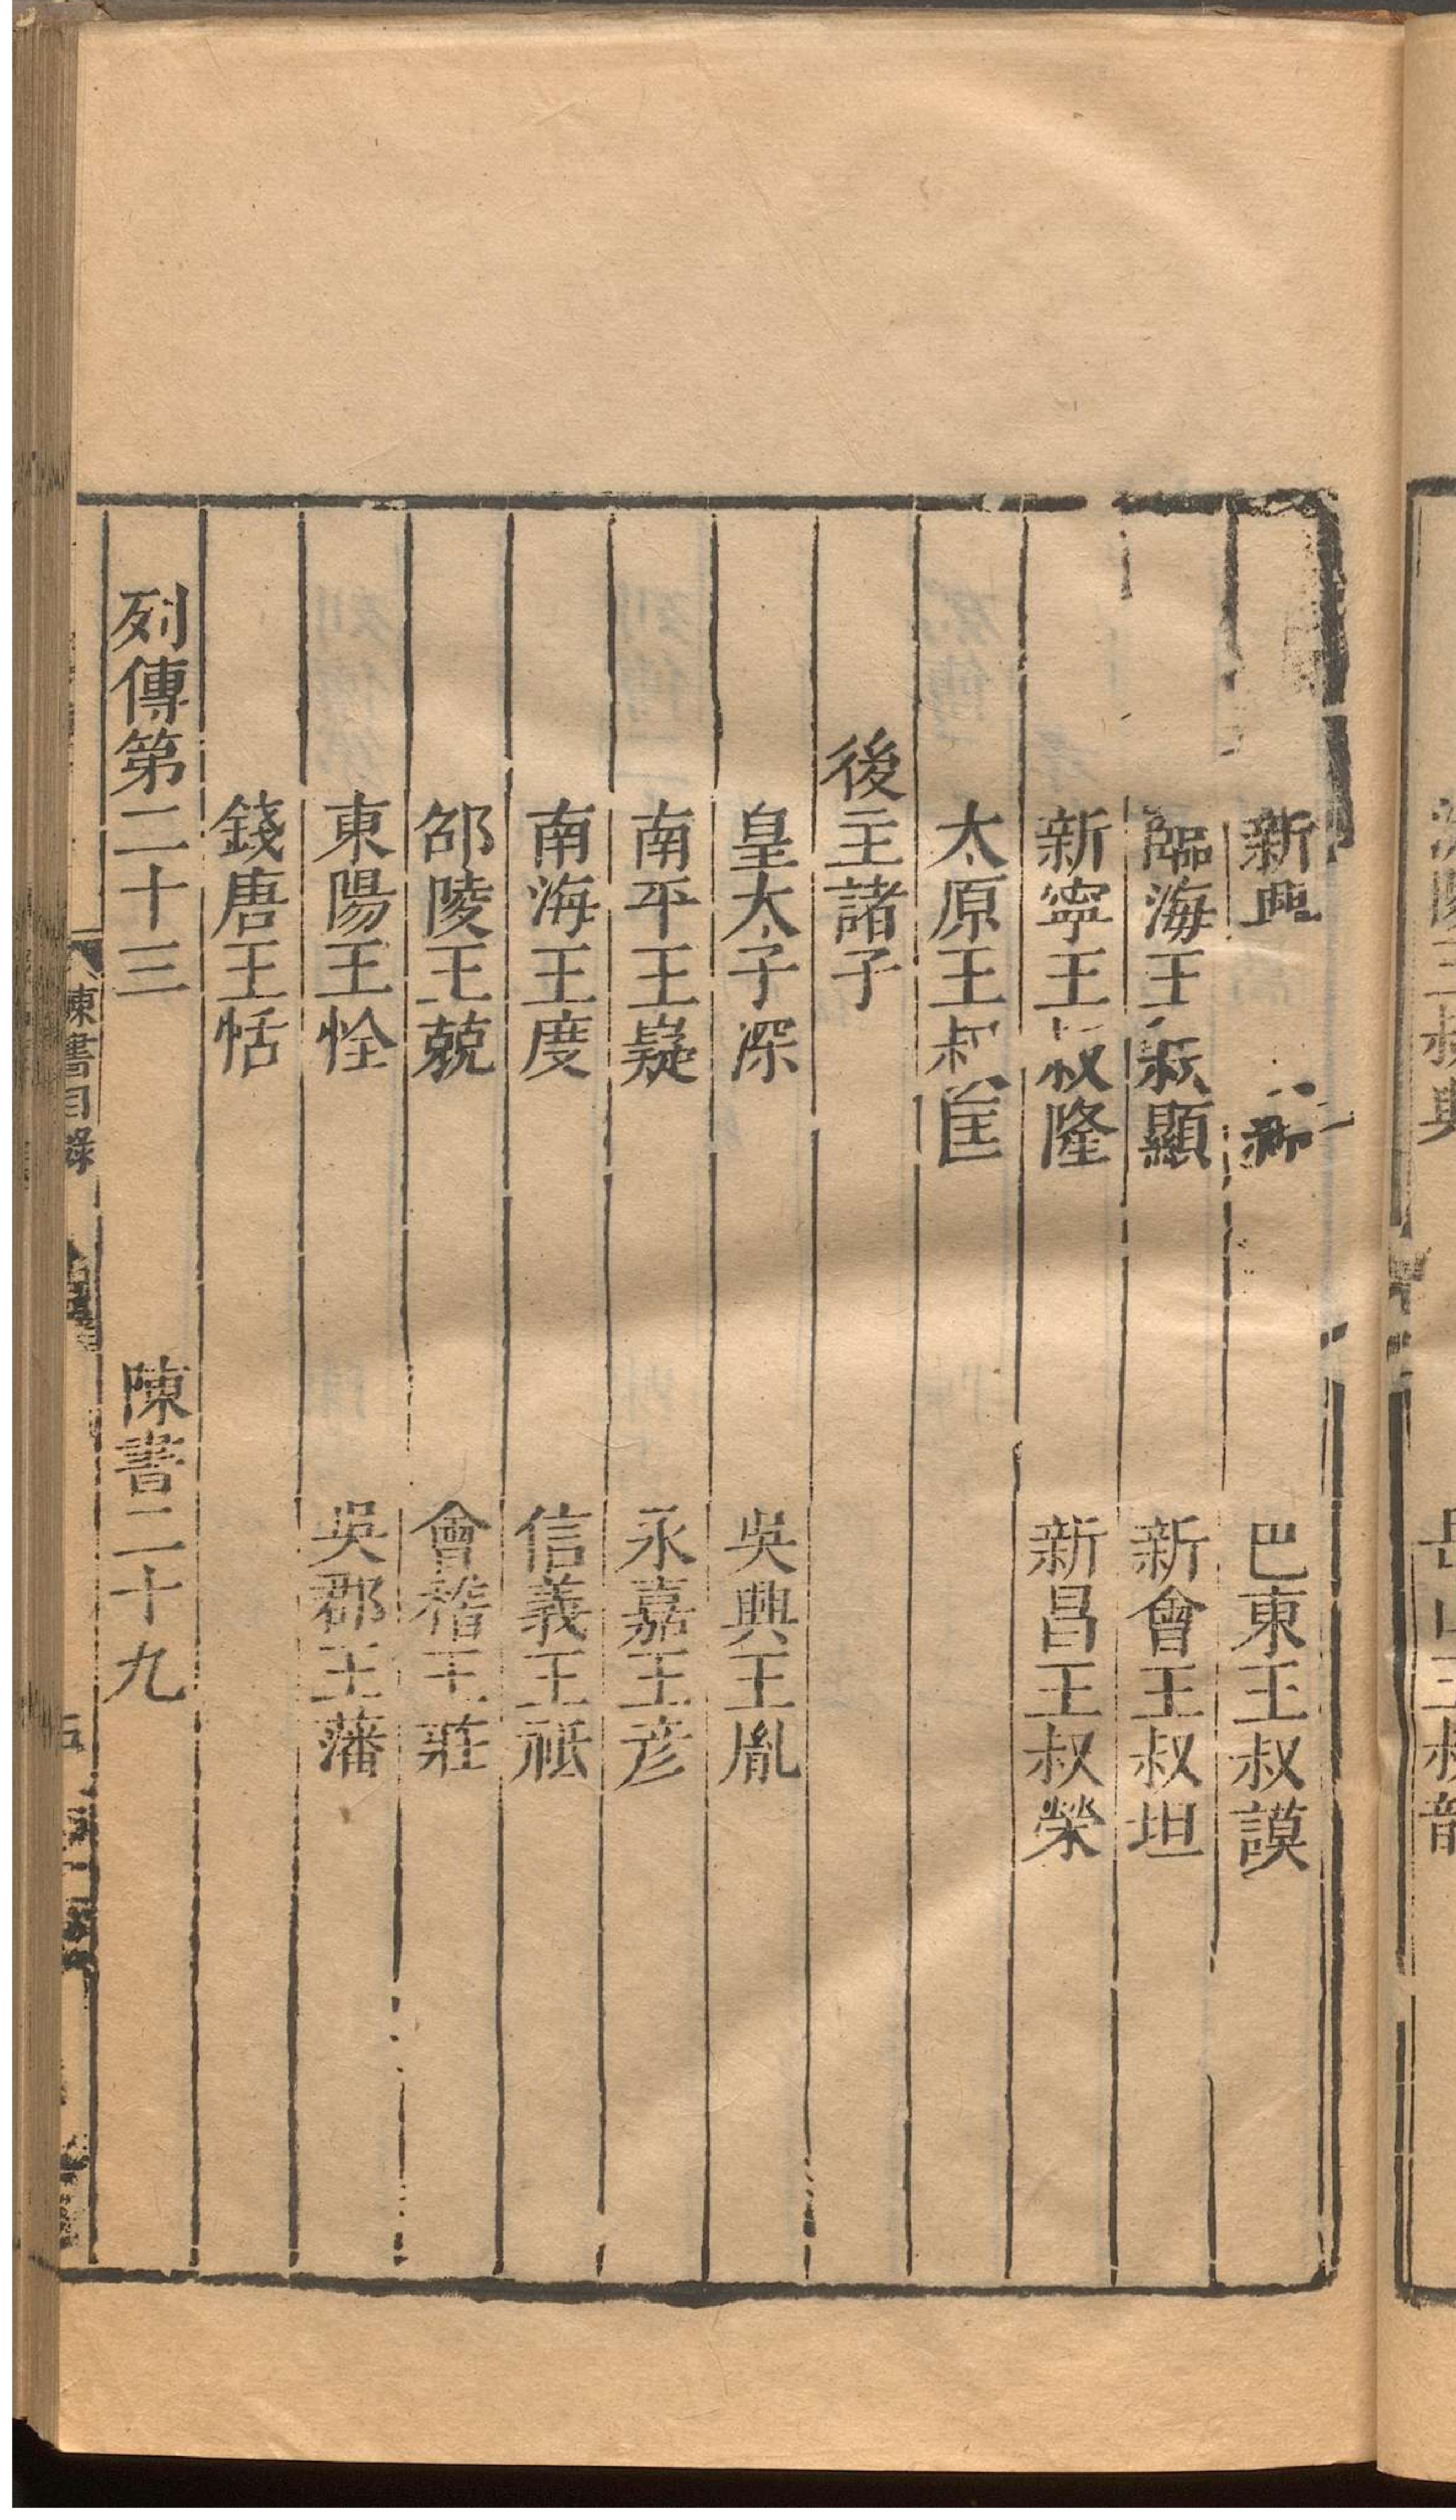 新興
巴東王叔謨
臨海王叔顯
新會王叔坦
新寧王叔隆
新昌王叔榮
太原王叔匡
後主諸子
皇太子深
吳興王胤
南平王嶷
永嘉王彦
南海王度
信義王祗
邵陵王兢
會稽王莊
東陽王恮
吳郡王藩
錢唐王恬
列傳第二十三
陳書二十九
陳書目錄
五